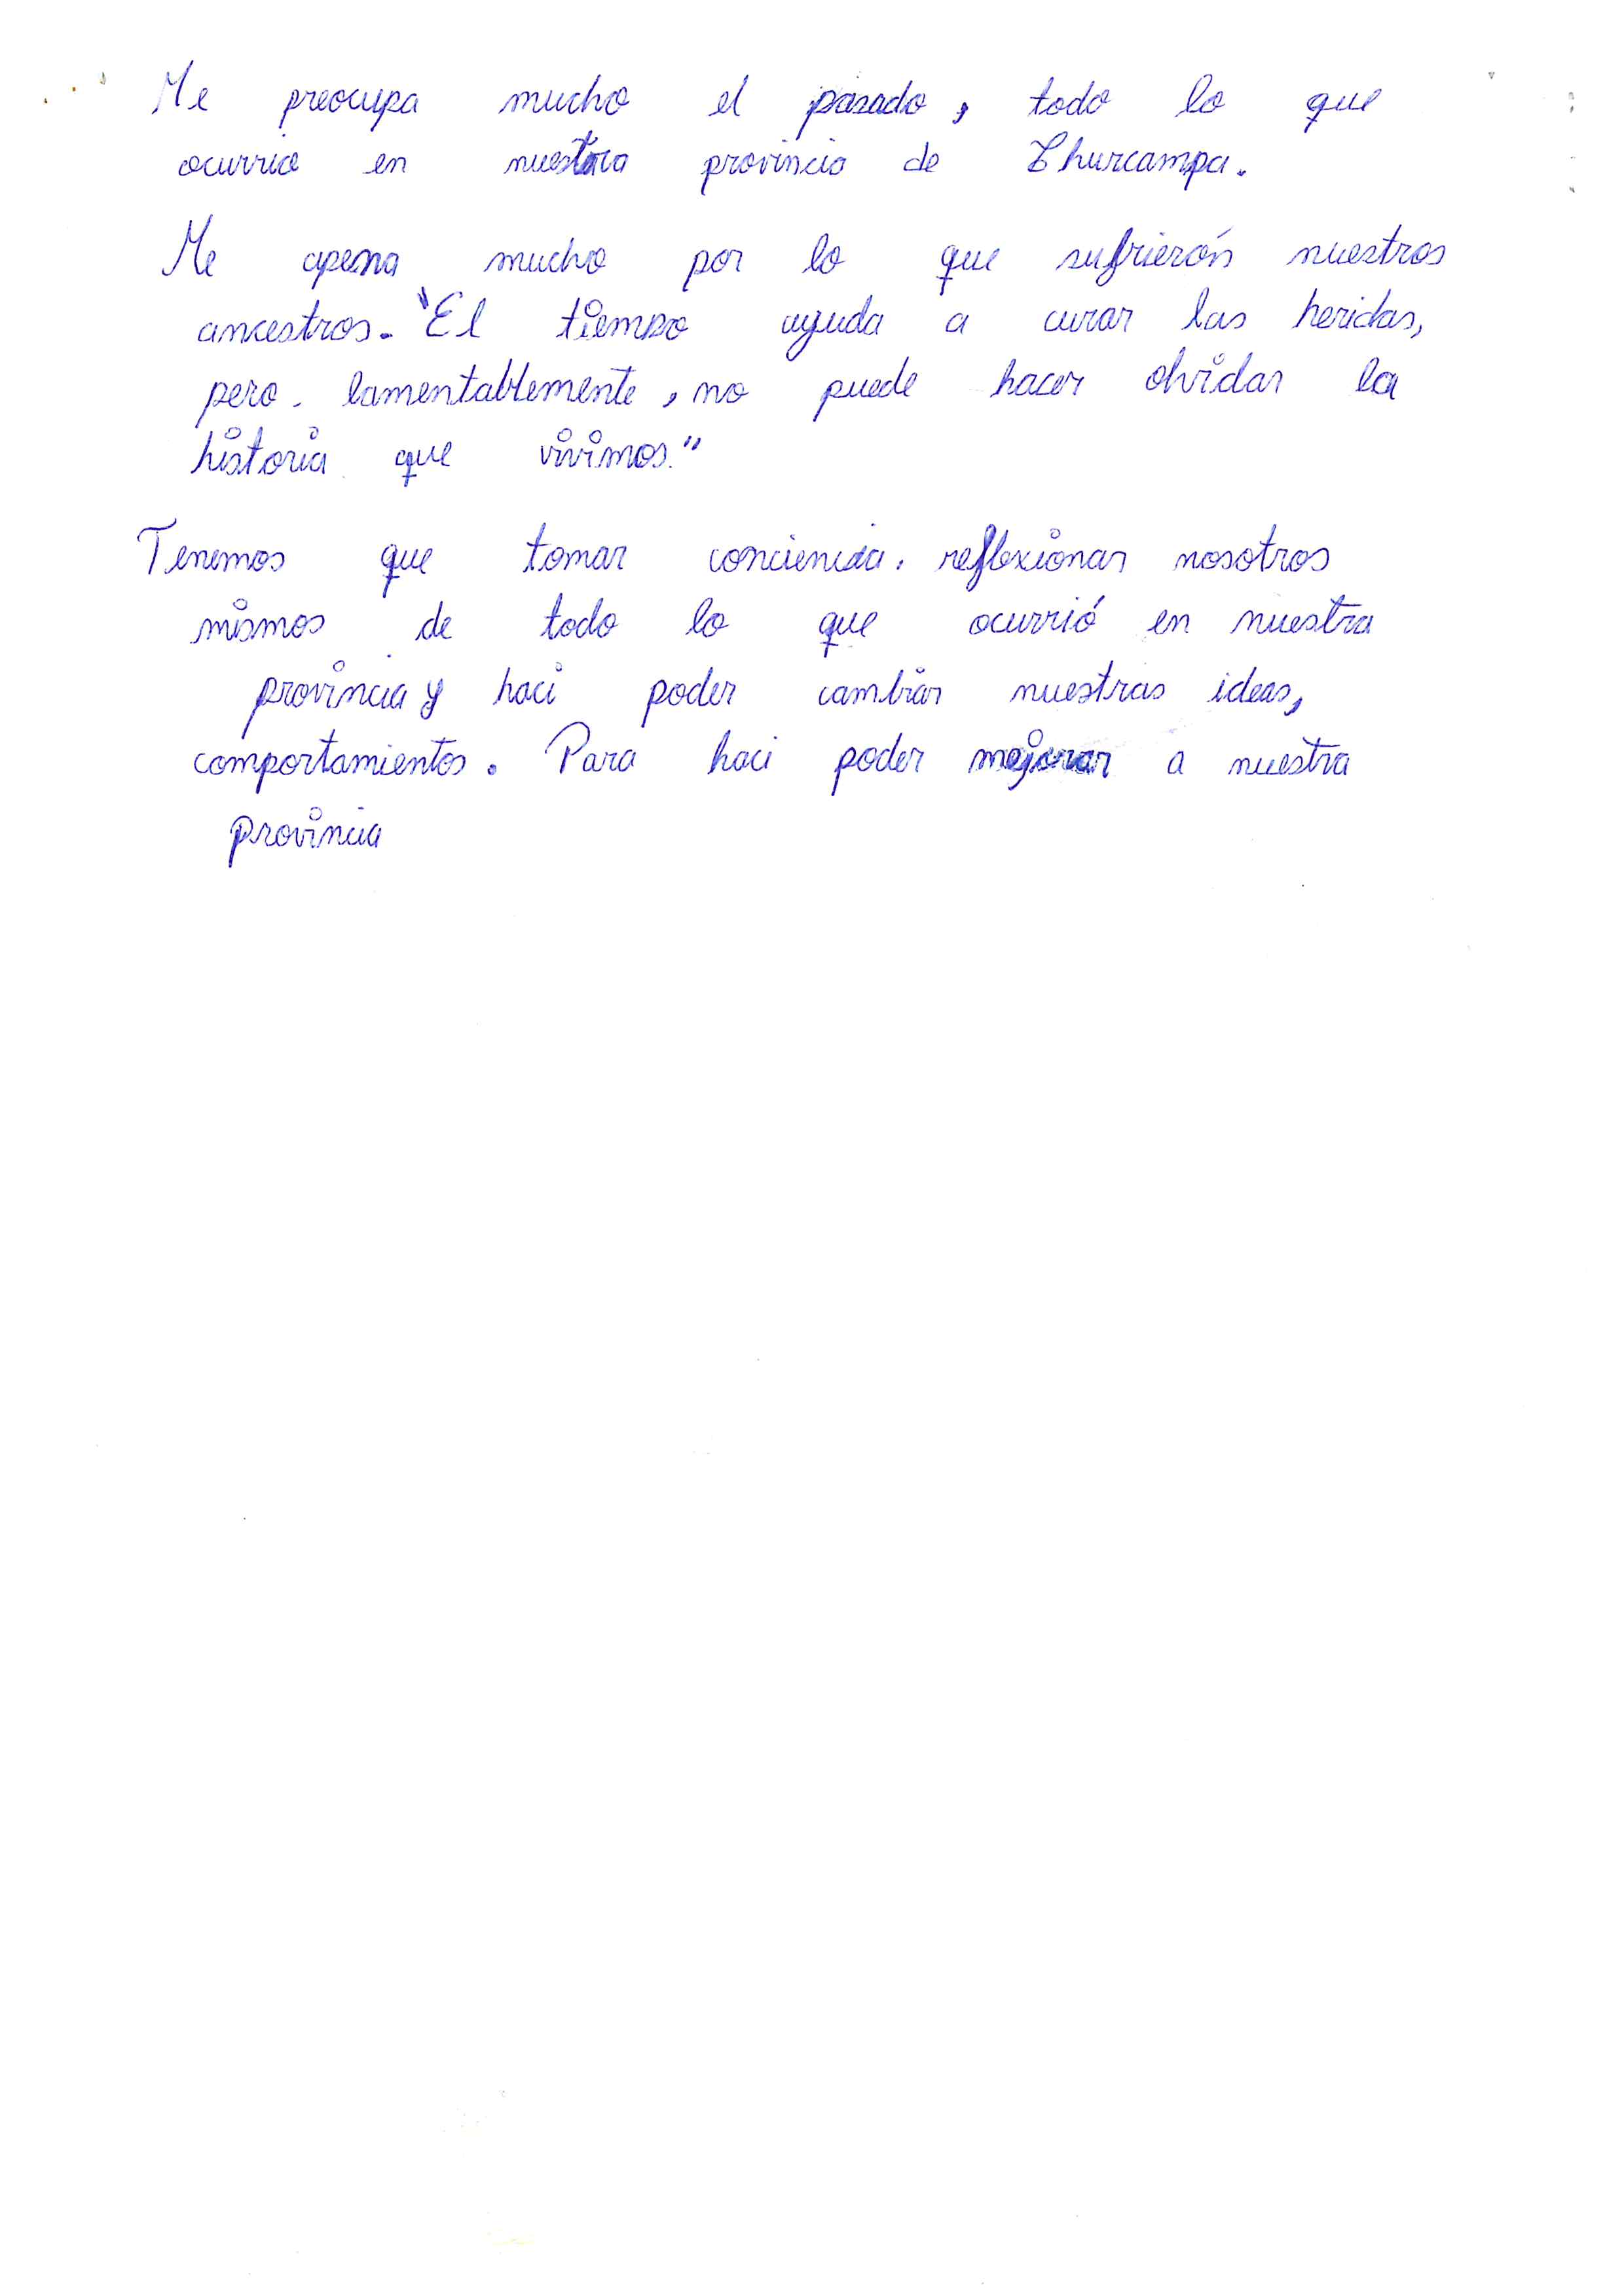 Me preocupa mucho el pasado, todo lo que
ocurrio en nuestra provincia de Churcampa.
Me apena mucho por lo que sufrierón nuestros
ancestros. "El tiempo ayuda a curar las heridas,
pero. lamentablemente, no puede hacer olvidar la
historia que vivimos."
Tenemos que tomar conciencia. reflexionar nosotros
mismos de todo lo que ocurrió en nuestra
provincia y haci poder cambiar nuestras ideas,
comportamientos. Para haci poder mejorar a nuestra
provincia